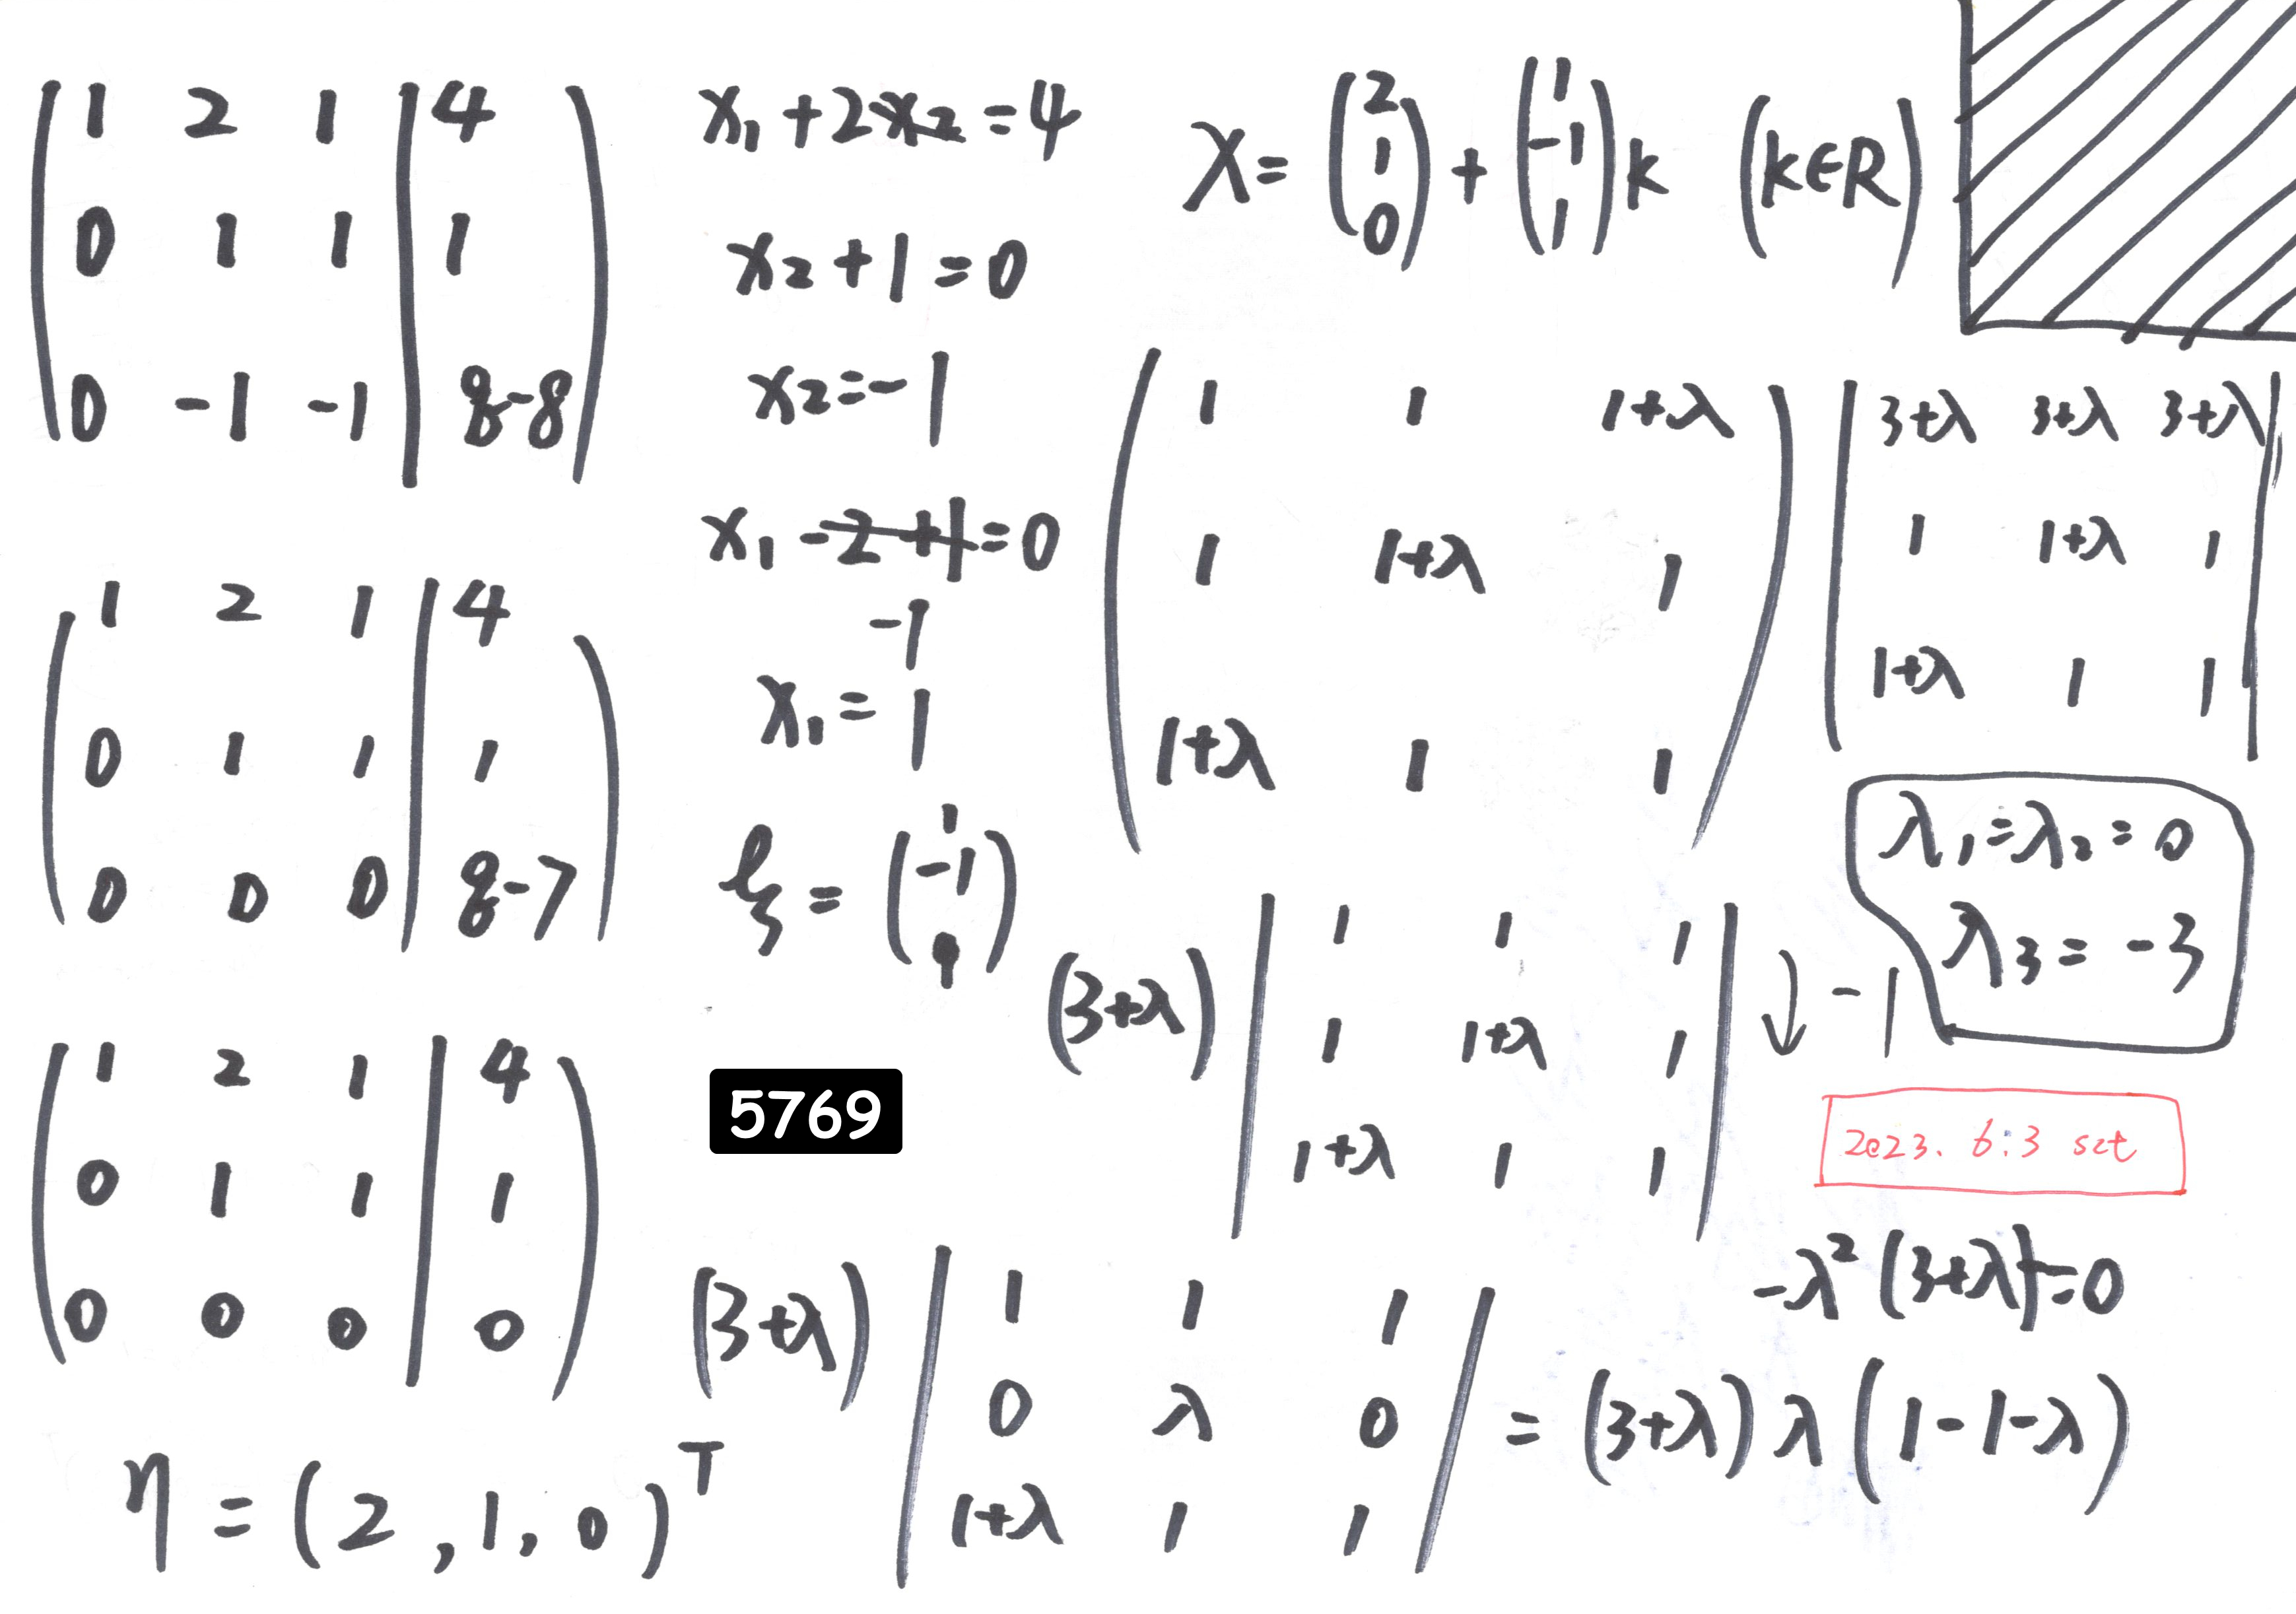 1 2 1 | 4
0 1 1 | 1
0 -1 -1 | 8-8
1 2 1 | 4
0 1 1 | 1
0 0 0 | 8-7
1 2 1 | 4
0 1 1 | 1
0 0 0 | 0
η = (2, 1, 0)ᵀ
x₁+2x₂=4
x₂+1=0
x₂=-1
x₁-2+1=0
-1
x₁=1
ξ = (1 -1 1)
5769
X = (2 1 0) + (1 -1 1)k (k∈R)
1 1 1+λ
1 1+λ 1
1+λ 1 1
3+λ 3+λ 3+λ
1 1+λ 1
1+λ 1 1
λ₁=λ₂=0
λ₃=-3
(3+λ) | 1 1 1
1 1+λ 1
1+λ 1 1 | ↓ -1
2023. 6.3 sct
-λ²(3+λ)=0
(3+λ) | 1 1 1
0 λ 0
1+λ 1 1 | = (3+λ)λ(1-1-λ)